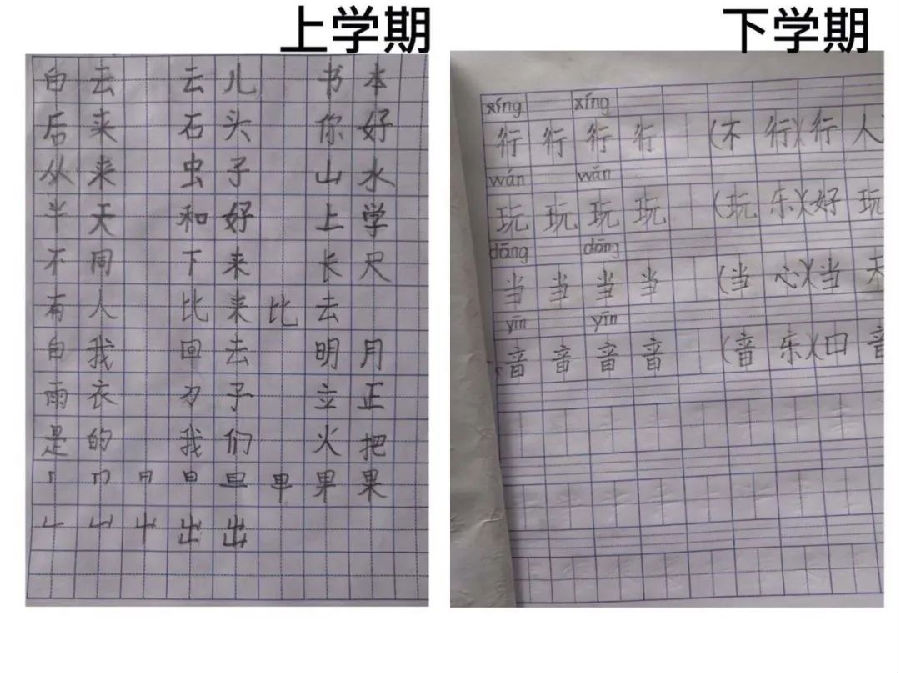 上学期
白云 云儿 书本
后来 石头 你好
从来 虫子 山水
半天 和好 上学
不同 下来 长尺
有人 比来比去
自我 回去 明月
雨衣 刀子 立正
是的 我们 火把
果
出出
下学期
xíng xíng
行行行行 (不行)(行人
wán wán
玩玩玩玩 (玩乐)(好玩
dāng dāng
当当当当 (当心)(当天
yīn yīn
音音音音 (音乐)(口音